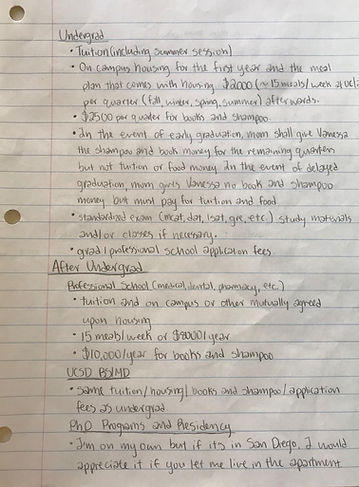 Undergrad
• Tuition (including summer session)
• On campus housing for the first year and the meal
plan that comes with housing. $2000 (~15 meals/week at
per quarter (fall, winter, spring, summer) afterwards.
• $2500 per quarter for books and shampoo.
• In the event of early graduation, mom shall give Vanessa
the shampoo and book money for the remaining quarters
but not tuition or food money. In the event of delayed
graduation, mom gives Vanessa no book and shampoo
money but must pay for tuition and food
• standardized exam (mcat, dat, lsat, gre, etc.) study materials
and/or classes if necessary.
• grad/professional school application fees.
After Undergrad
Professional School (medical, dental, pharmacy, etc.)
• tuition and on campus or other mutually agreed
upon housing
• 15 meals/week or $8000/year
• $10,000/year for books and shampoo
UCSD BS/MD
• same tuition/housing/books and shampoo/application
fees as undergrad
PhD Programs and Residency
• I'm on my own but if its in San Diego, I would
appreciate it if you let me live in the apartment